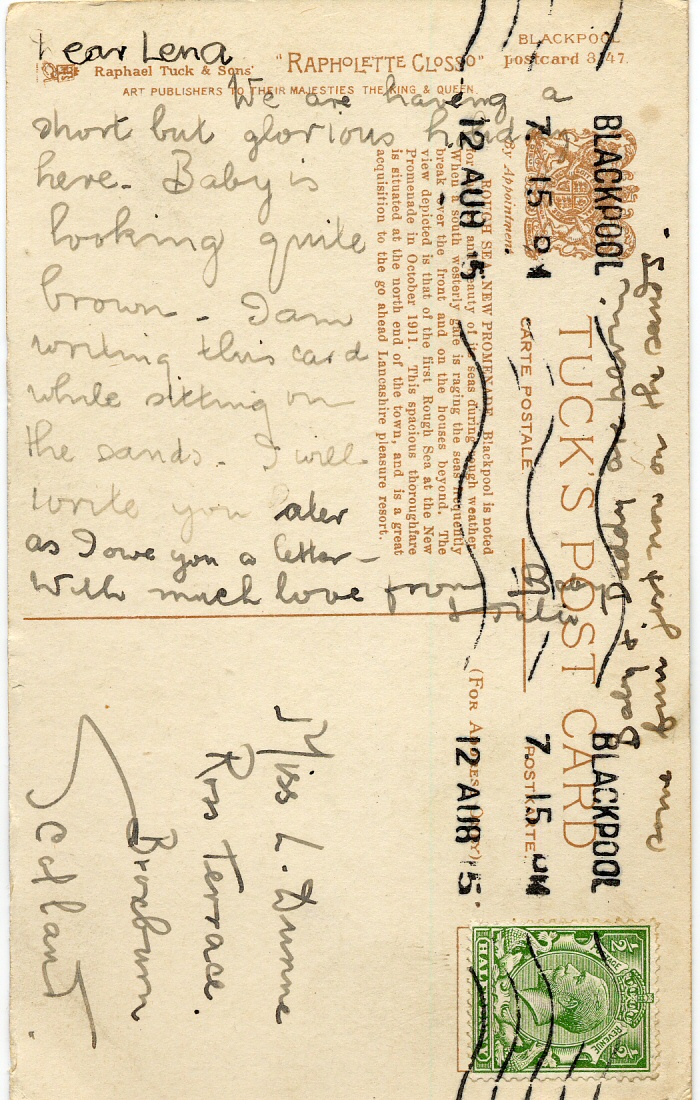 Dear Lena
We are having a
short but glorious holiday
here. Baby is
looking quite
brown. I am
writing this card
while sitting on
the sands. I will
write you later
as I owe you a letter.
With much love from
Baby & Daddy are having
run just now on the sands.
Raphael Tuck & Sons'
"RAPHOLETTE CLOSSO"
BLACKPOOL
postcard 8247.
ART PUBLISHERS TO THEIR MAJESTIES THE KING & QUEEN.
By Appointment.
TUCK'S POST CARD
CARTE POSTALE
POSTKARTE
(FOR ADDRESS ONLY)
ROUGH SEA, NEW PROMENADE. Blackpool is noted
for the and beauty of its seas during rough weather.
When a south westerly gale is raging the seas frequently
break over the front and on the houses beyond. The
view depicted is that of the first Rough Sea at the New
Promenade in October 1911. This spacious thoroughfare
is situated at the north end of the town, and is a great
acquisition to the go ahead Lancashire pleasure resort.
BLACKPOOL
7. 15 PM
12 AUG 15
BLACKPOOL
7. 15 PM
12 AUG 15
Miss L. Dunne
Ross Terrace.
Broxburn
Scotland.
1/2 POSTAGE REVENUE 1/2
HALF